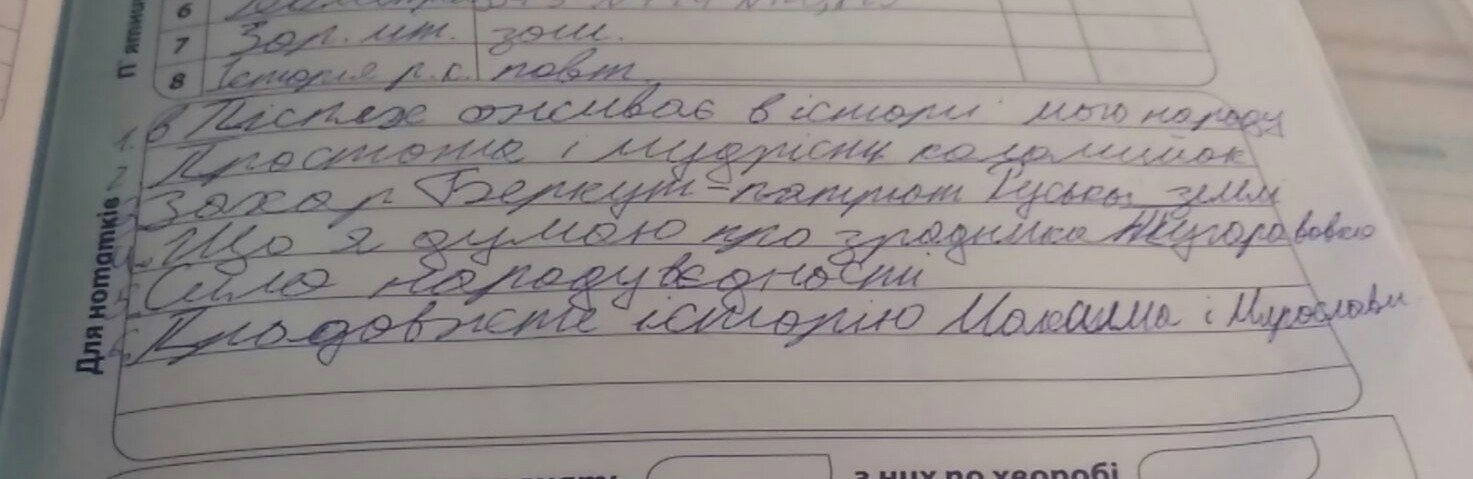 П'ятниц
6
7 Зар. літ. зош.
8 Історія р.с. повт.
Для нотатків
1. в Піснях оживає в історі мого народу
2 Простота і мудрість коломийок
3 Захар Беркут - патріот Руської землі
4. Що я думаю про зрадника Тугара вовка
5. Сила народу в єдності
6. Продовжте історію Максима і Мирослави
з них по хворобі